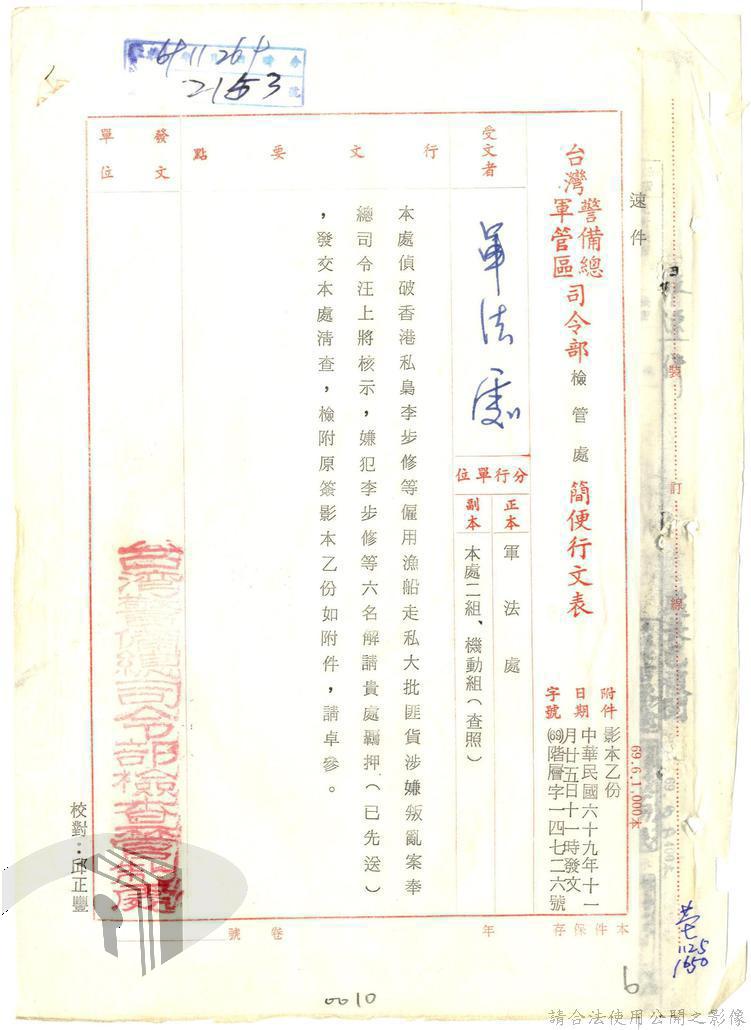 速件
台灣警備總司令部
軍管區
檢管處
簡便行文表
附件 影本乙份
日期 中華民國六十九年十一月廿五日十一時發文
字號 (69)階層字一四七二六號
受文者
軍法處
分行單位
正本 軍法處
副本 本處二組、機動組(查照)
行文要點
本處偵破香港私梟李步修等僱用漁船走私大批匪貨涉嫌叛亂案奉
總司令汪上將核示,嫌犯李步修等六名解請貴處羈押(已先送)
,發交本處清查,檢附原簽影本乙份如附件,請卓參。
發文單位
台灣警備總司令部檢查管制處
校對:邱正豐
本件保存 年 卷 號
69.6.1,000本
裝 訂 線
69 11 26 9
2153
1125
1650
6
0010
請合法使用公開之影像